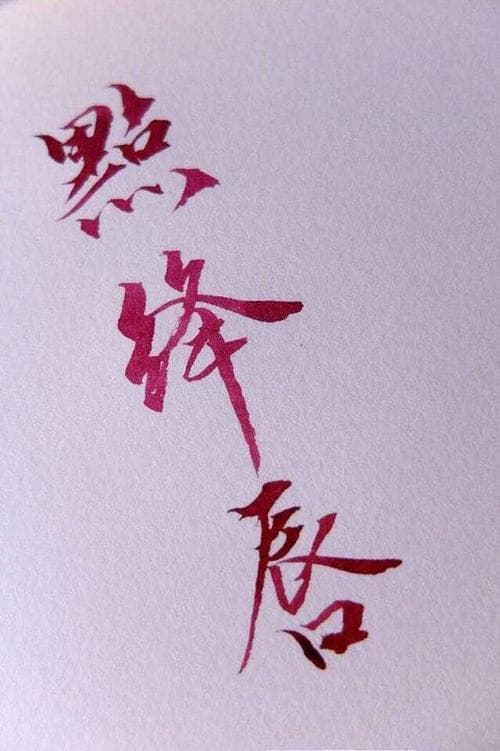 點
絳
唇